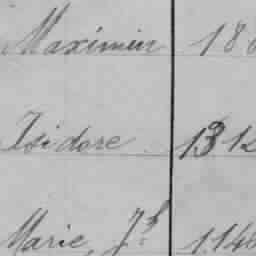 Maximin 18
Isidore 131
Marie Jh 114